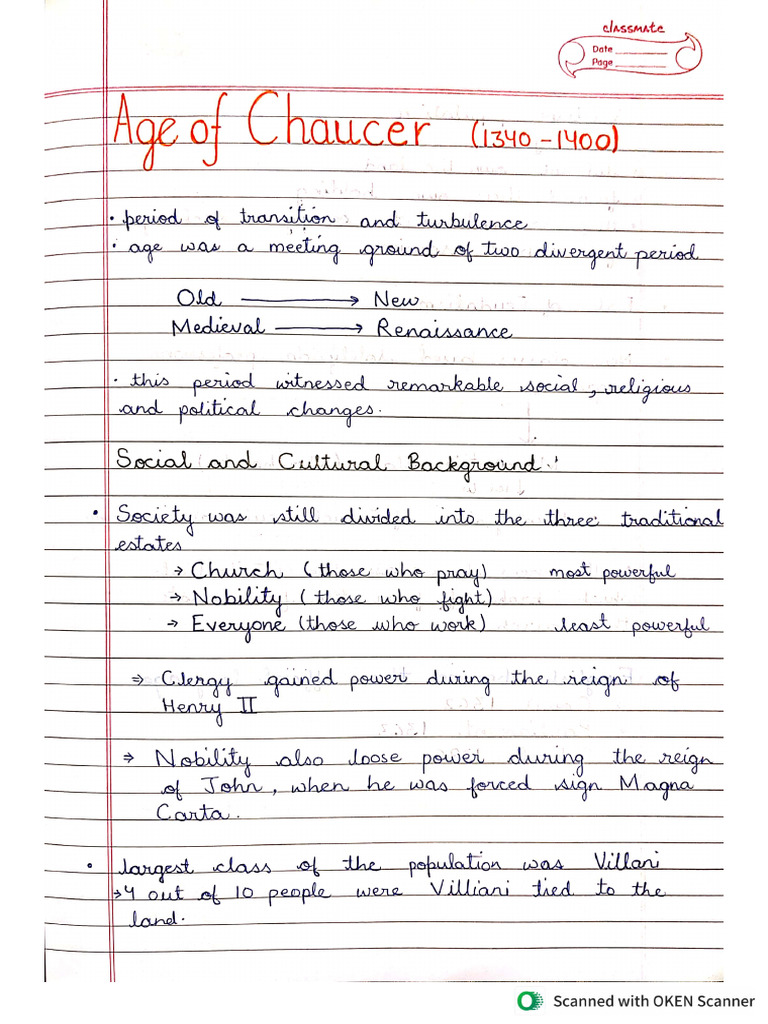 classmate
Date
Page
Age of Chaucer (1340-1400)
• period of transition and turbulence
• age was a meeting ground of two divergent period
Old → New
Medieval → Renaissance
• this period witnessed remarkable social, religious
and political changes.
Social and Cultural Background
• Society was still divided into the three traditional
estates
→ Church (those who pray) most powerful
→ Nobility (those who fight)
→ Everyone (those who work) least powerful
⇒ Clergy gained power during the reign of
Henry II
⇒ Nobility also loose power during the reign
of John, when he was forced sign Magna
Carta.
• largest class of the population was Villani
→ 4 out of 10 people were Villiani tied to the
land.
Scanned with OKEN Scanner